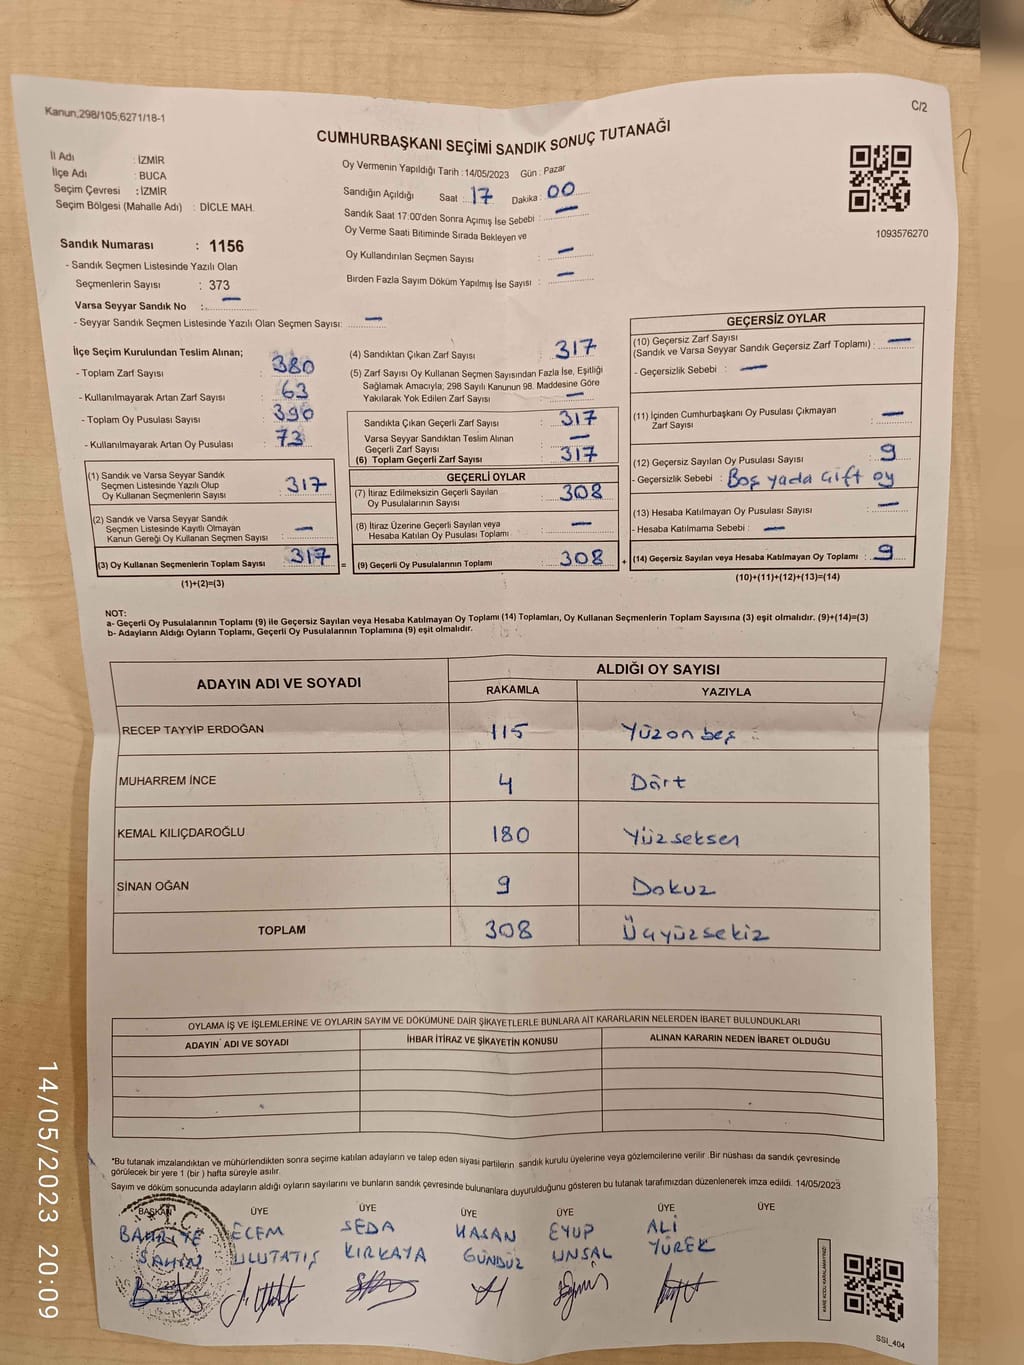 Kanun,298/105;6271/18-1
C/2
CUMHURBAŞKANI SEÇİMİ SANDIK SONUÇ TUTANAĞI
İl Adı : İZMİR
İlçe Adı : BUCA
Seçim Çevresi : İZMİR
Seçim Bölgesi (Mahalle Adı) : DİCLE MAH.
Oy Vermenin Yapıldığı Tarih :14/05/2023 Gün : Pazar
Sandığın Açıldığı Saat : 17 Dakika : 00
Sandık Saat 17:00'den Sonra Açımış İse Sebebi : —
Oy Verme Saati Bitiminde Sırada Bekleyen ve
Oy Kullandırılan Seçmen Sayısı : —
Birden Fazla Sayım Döküm Yapılmış İse Sayısı : —
1093576270
Sandık Numarası : 1156
- Sandık Seçmen Listesinde Yazılı Olan
Seçmenlerin Sayısı : 373
Varsa Seyyar Sandık No : —
- Seyyar Sandık Seçmen Listesinde Yazılı Olan Seçmen Sayısı: —
İlçe Seçim Kurulundan Teslim Alınan;
- Toplam Zarf Sayısı : 380
- Kullanılmayarak Artan Zarf Sayısı : 63
- Toplam Oy Pusulası Sayısı : 390
- Kullanılmayarak Artan Oy Pusulası : 73
(1) Sandık ve Varsa Seyyar Sandık
Seçmen Listesinde Yazılı Olup
Oy Kullanan Seçmenlerin Sayısı : 317
(2) Sandık ve Varsa Seyyar Sandık
Seçmen Listesinde Kayıtlı Olmayan
Kanun Gereği Oy Kullanan Seçmen Sayısı : —
(3) Oy Kullanan Seçmenlerin Toplam Sayısı : 317 =
(1)+(2)=(3)
(4) Sandıktan Çıkan Zarf Sayısı : 317
(5) Zarf Sayısı Oy Kullanan Seçmen Sayısından Fazla İse, Eşitliği
Sağlamak Amacıyla; 298 Sayılı Kanunun 98. Maddesine Göre
Yakılarak Yok Edilen Zarf Sayısı : —
Sandıkta Çıkan Geçerli Zarf Sayısı : 317
Varsa Seyyar Sandıktan Teslim Alınan
Geçerli Zarf Sayısı : —
(6) Toplam Geçerli Zarf Sayısı : 317
GEÇERLİ OYLAR
(7) İtiraz Edilmeksizin Geçerli Sayılan
Oy Pusulalarının Sayısı : 308
(8) İtiraz Üzerine Geçerli Sayılan veya
Hesaba Katılan Oy Pusulası Toplamı : —
(9) Geçerli Oy Pusulalarının Toplamı : 308 +
GEÇERSİZ OYLAR
(10) Geçersiz Zarf Sayısı
(Sandık ve Varsa Seyyar Sandık Geçersiz Zarf Toplamı) : —
- Geçersizlik Sebebi : —
(11) İçinden Cumhurbaşkanı Oy Pusulası Çıkmayan
Zarf Sayısı : —
(12) Geçersiz Sayılan Oy Pusulası Sayısı : 9
- Geçersizlik Sebebi : Boş yada Çift oy
(13) Hesaba Katılmayan Oy Pusulası Sayısı : —
- Hesaba Katılmama Sebebi : —
(14) Geçersiz Sayılan veya Hesaba Katılmayan Oy Toplamı : 9
(10)+(11)+(12)+(13)=(14)
NOT:
a- Geçerli Oy Pusulalarının Toplamı (9) ile Geçersiz Sayılan veya Hesaba Katılmayan Oy Toplamı (14) Toplamları, Oy Kullanan Seçmenlerin Toplam Sayısına (3) eşit olmalıdır. (9)+(14)=(3)
b- Adayların Aldığı Oyların Toplamı, Geçerli Oy Pusulalarının Toplamına (9) eşit olmalıdır.
ADAYIN ADI VE SOYADI ALDIĞI OY SAYISI
RAKAMLA YAZIYLA
RECEP TAYYİP ERDOĞAN 115 Yüzonbeş
MUHARREM İNCE 4 Dört
KEMAL KILIÇDAROĞLU 180 Yüzseksen
SİNAN OĞAN 9 Dokuz
TOPLAM 308 Üçyüzsekiz
OYLAMA İŞ VE İŞLEMLERİNE VE OYLARIN SAYIM VE DÖKÜMÜNE DAİR ŞİKAYETLERLE BUNLARA AİT KARARLARIN NELERDEN İBARET BULUNDUKLARI
ADAYIN ADI VE SOYADI İHBAR İTİRAZ VE ŞİKAYETİN KONUSU ALINAN KARARIN NEDEN İBARET OLDUĞU
*Bu tutanak imzalandıktan ve mühürlendikten sonra seçime katılan adayların ve talep eden siyasi partilerin sandık kurulu üyelerine veya gözlemcilerine verilir .Bir nüshası da sandık çevresinde
görülecek bir yere 1 (bir ) hafta süreyle asılır.
Sayım ve döküm sonucunda adayların aldığı oyların sayılarını ve bunların sandık çevresinde bulunanlara duyurulduğunu gösteren bu tutanak tarafımızdan düzenlenerek imza edildi. 14/05/2023
BAŞKAN ÜYE ÜYE ÜYE ÜYE ÜYE ÜYE
BAHRİYE ECEM SEDA HASAN EYUP ALİ
ŞAHİN ULUTATIŞ KIRKAYA GÜNDÜZ UNSAL YÜREK
T.C.
SSİ_404
14/05/2023 20:09